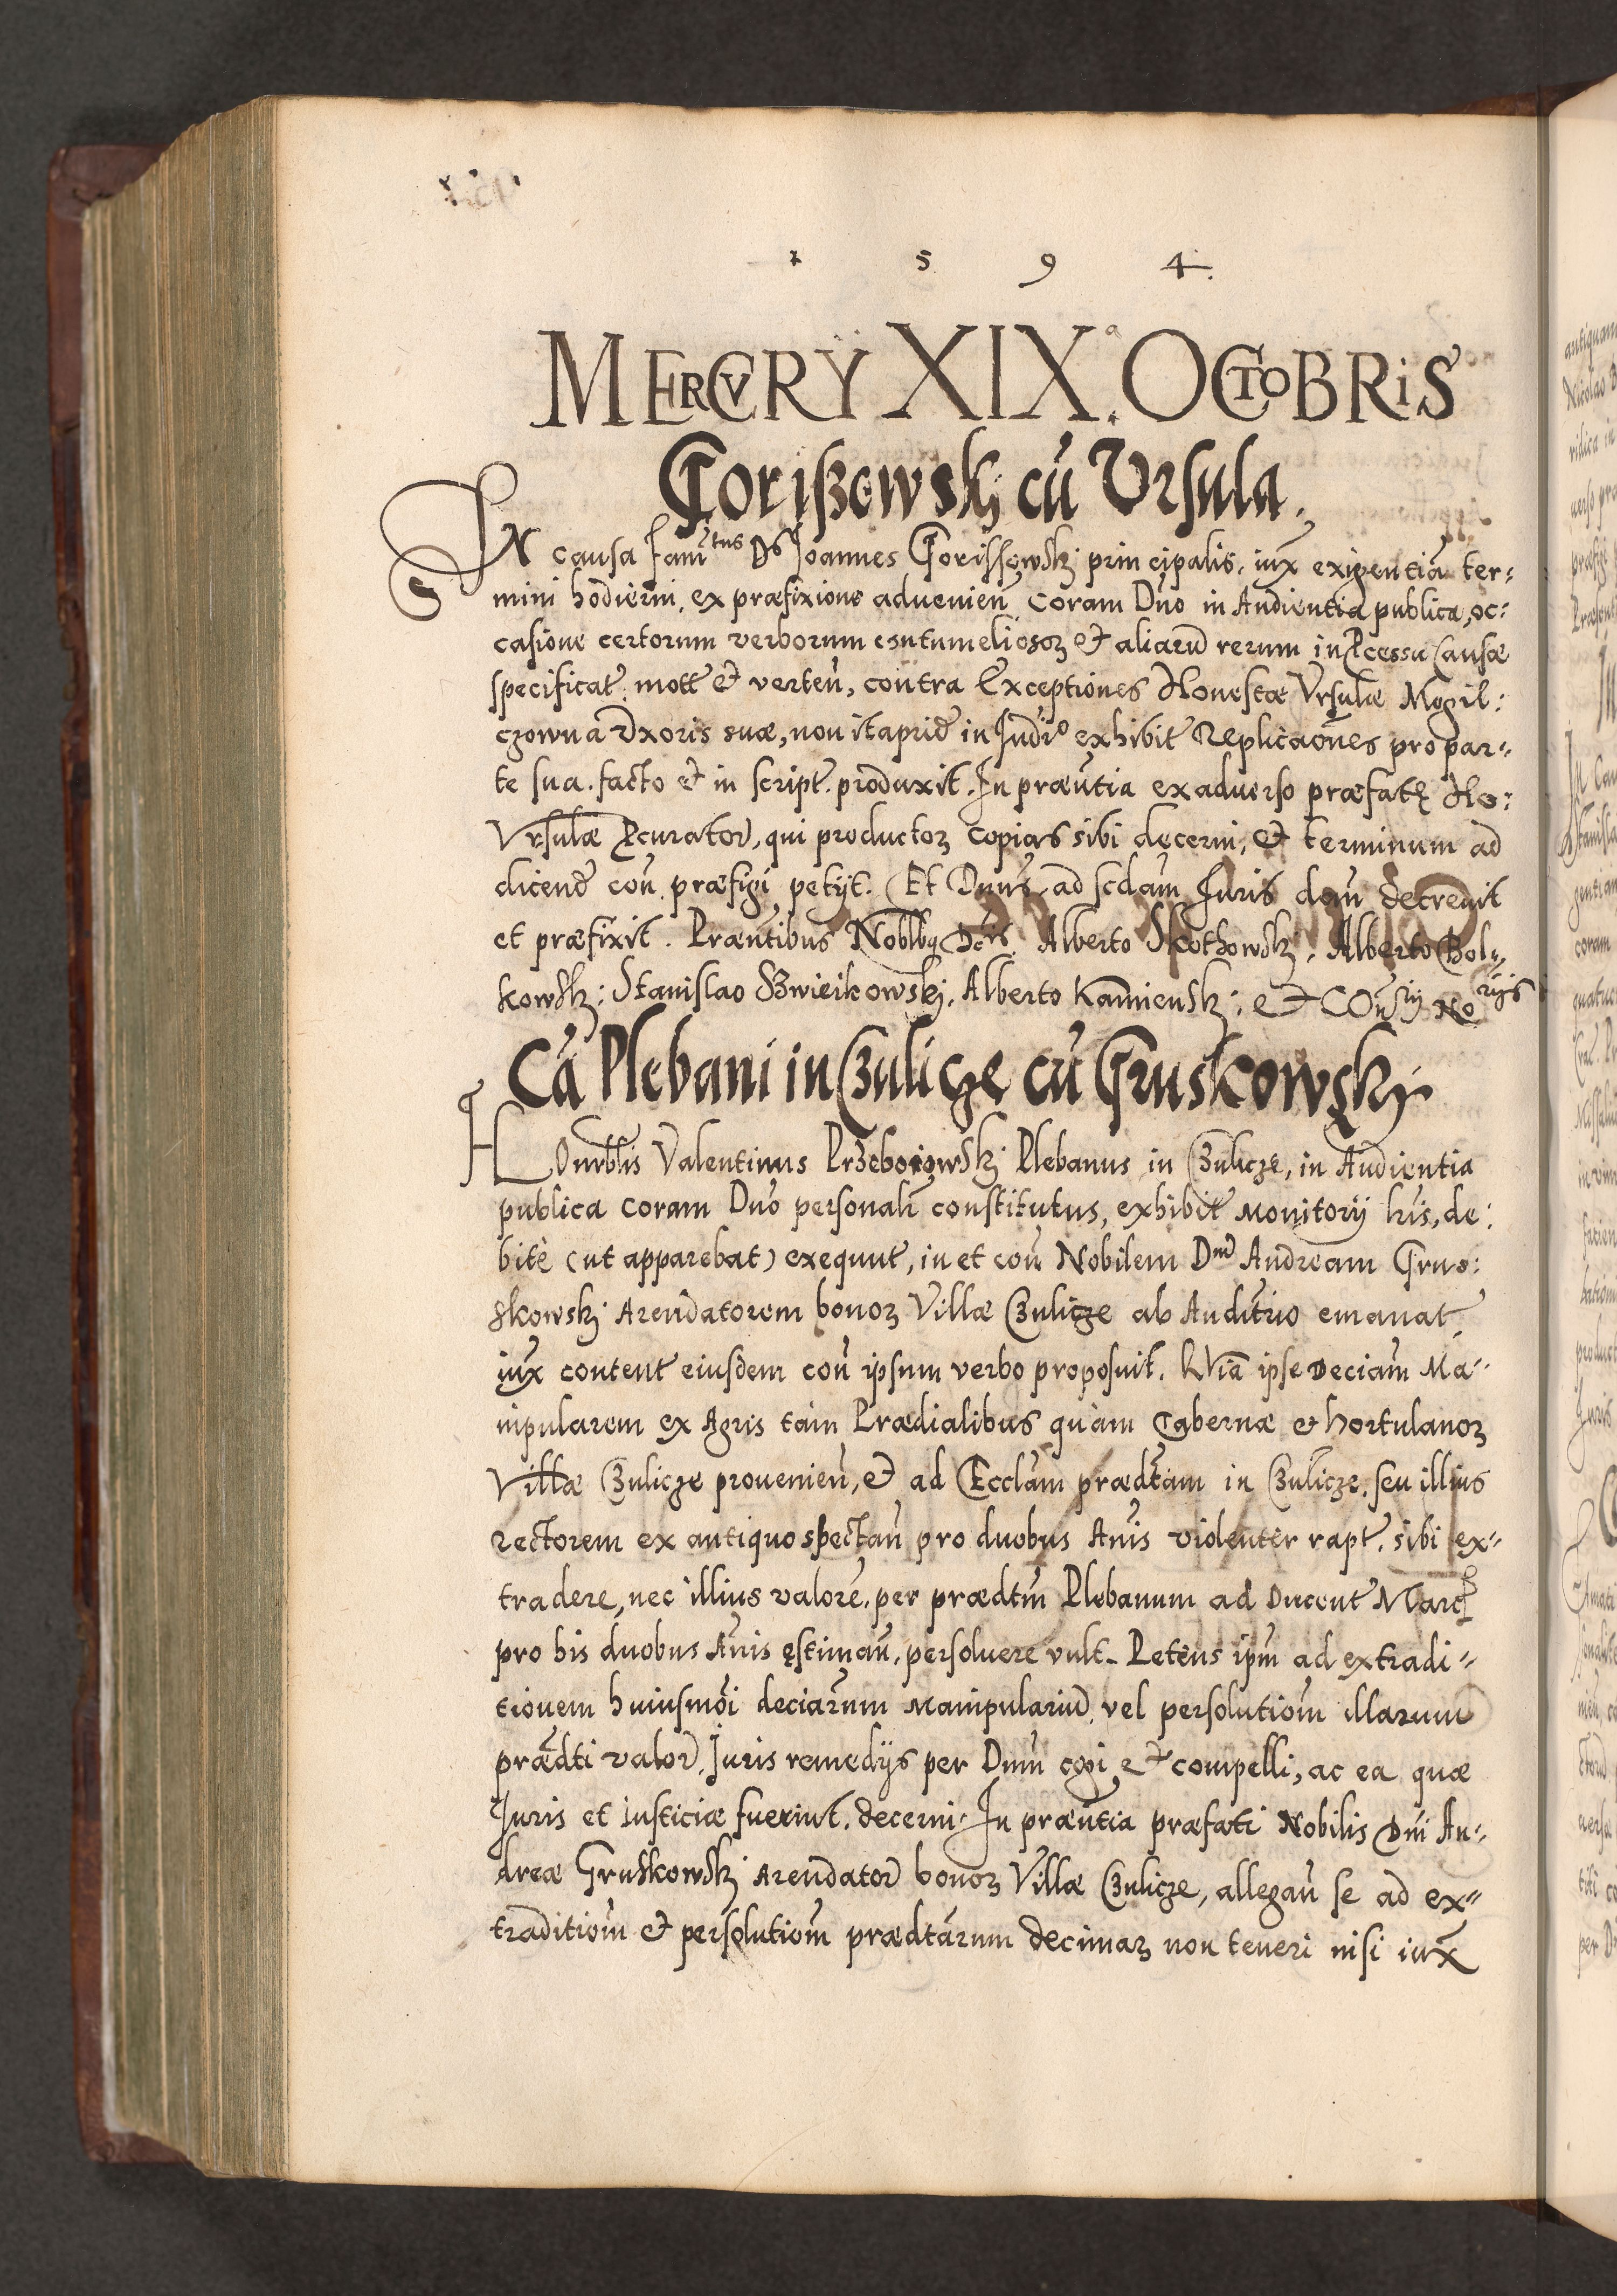 1 5 9 4.
MERCVRY XIX.ª OCTOBRIS
Gorißewskj cū Vrsula.
IN causa famtus Ds Joannes Gorissewskj principalis, iux exigentiā ter:
mini hodierni, ex præfixione advenieñ coram Dño in Audientia publica, oc:
casione certorum verborum contumeliosoꝝ et aliarū rerum in Pcessu Causæ
specificat. mott et verteñ, contra Exceptiones Honestæ Vrsulæ Mogil:
czowna Vxoris suæ, non itaprid in Judio exhibit Replicaões pro par:
te sua. facto et in script. produxit. In præñtia ex adverso præfatę Ho:
Vrsulæ Pcurator, qui productoꝝ copias sibi decerni, et terminum ad
dicend coñ præfigi petijt. Et Dnus ad scdam Juris dañ decrevit
et præfixit. Præñtibus Noblbȝ Dnis Alberto Skothowskj, Alberto Bolu
kowskj: Stanislao Bzwieikowskj, Alberto Kamienskj: et COnsijs Norijs
Cā Plebani in Czulicze cū Gruskowskj.
HOnrblis Valentinus Przeborowskj Plebanus in Czulicze, in Audientia
publica coram Dño personalr constitutus, exhibit Monitorij lrīs, de:
bitè (ut apparebat) exequut, in et coñ Nobilem Dnū Andream Grus:
skowskj Arendatorem bonoꝝ Villæ Czulicze ab Auditrio emanat,
iux content eiusdem coñ ipsum verbo proposuit. QVia ipse Deciam Ma-
nipularem ex Agris tam Prædialibus quàm Tabernæ et Hortulanoꝝ
Villæ Czulicze provenieñ, et ad Ecclam prædtam in Czulicze, seu illius
Rectorem ex antiquo spectañ pro duobus Anis violenter rapt. sibi ex-
tradere, nec illius valorē, per prædtm Plebanum ad Ducent Marc
pro his duobus Anis ęstimañ, persolvere vult. Petens ipm ad extradi-
tionem huiusmoi deciarum Manipulariū, vel persolutiom illarum
prædti valor, Juris remedijs per Dnm cogi et compelli, ac ea quæ
Juris et iusticiæ fuerint, decerni. In præñtia præfati Nobilis Dni An-
dreæ Gruskowskj Arendator bonoꝝ Villæ Czulicze, allegañ se ad ex-
traditiom et persolutiom prædtarum decimaꝝ non teneri nisi iux